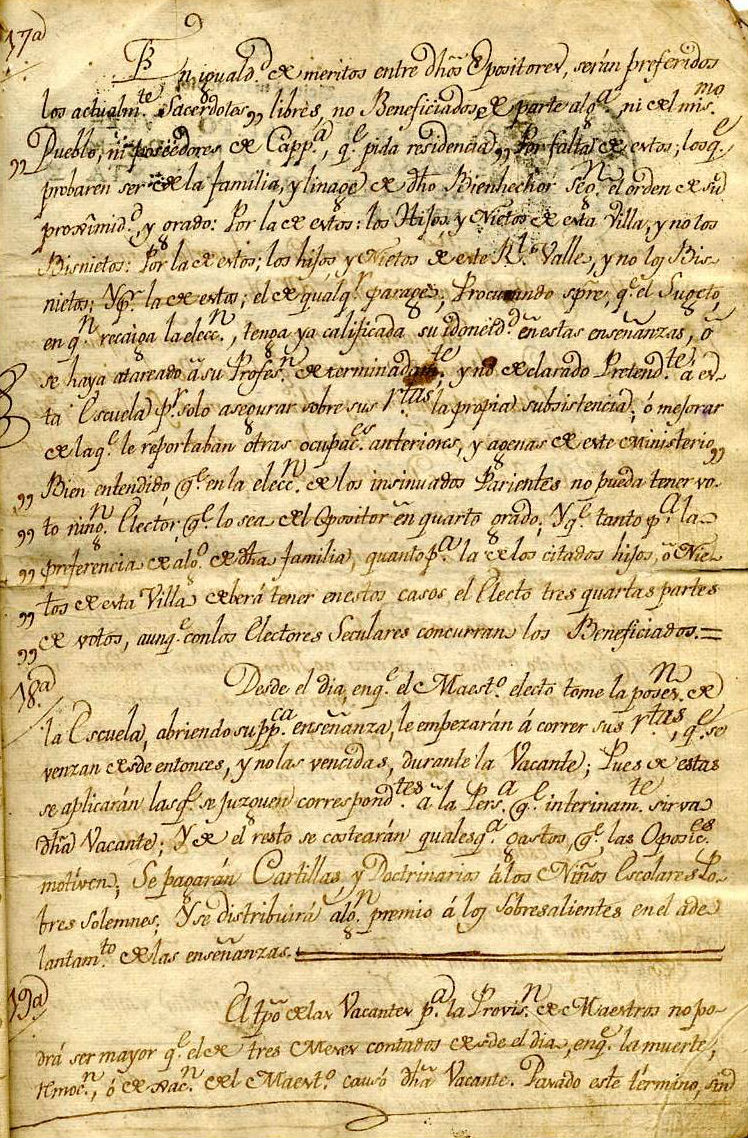 17ª
En iguald.d de meritos entre dhõs Opositores, serán preferidos
los actualm.te Sacerdotes,, libres, no Beneficiados de parte alg.ª, ni del mis.mo
,,Pueblo, ni poseèdores de Capp.ª, q.e pida residencia,, Por falta de estos; los q.e
probaren ser de la familia, y linage de dhõ Bienhechor seg.n el orden de su
proxîmid.d, y grado: Por la de estos: los Hijos, y Nietos de esta Villa, y no los
Bisnietos: Por la de estos; los hijos y Nietos de este R.l Valle, y no los Bis-
nietos; Y p.r la de estos; el de qualq.r parage; Procurando sp̃re, q.e el Sugeto,
en q.n recaiga la elecc.n, tenga ya calificada su idoneid.d en estas enseñanzas, ó
se haya atareado à su Profes.n determinadam.te; y no declarado Pretend.te à es-
ta Escuela p.r solo asegurar sobre sus r.tas la propia subsistencia; ó mejorar
de la q.e le reportaban otras ocupac.es anteriores, y agenas de este Ministerio,,
,,Bien entendido q.e en la elecc.n de los insinuados Parientes no pueda tener vo-
,,to ning.n Elector, q.e lo sea del Opositor en quarto grado; Y q.e tanto p.ª la
,,preferencia de alg.o de dhã familia, quanto p.ª la de los citados hijos, ò Nie-
,,tos de esta Villa deberá tener en estos casos el Electo tres quartas partes
,,de votos, aunq.e con los Electores Seculares concurran los Beneficiados.=
18ª
Desde el dia, en q.e el Maest.o electo tome la poses.n de
la Escuela, abriendo su pp.ca enseñanza, le empezarán á correr sus r.tas, q.e se
venzan desde entonces, y no las vencidas, durante la Vacante; Pues de estas
se aplicarán las q.e se juzguen correspond.tes à la Pers.ª q.e interinam.te sirva
dhã Vacante; Y de el resto se costearán qualesq.ª gastos, q.e las Oposic.es
motiven; Se pagarán Cartillas, y Doctrinarios á los Niños Escolares Po-
bres solemnes; Y se distribuirá alg.n premio á los sobresalientes en el ade-
lantam.to de las enseñanzas.
19ª
El tp̃o de las Vacantes p.ª la Provis.n de Maestros no po-
drá ser mayor q.e el de tres Meses contados desde el dia, en q.e la muerte,
rmoc.n, ó dexac.n del Maest.o causó dhã Vacante. Pasado este término, sind